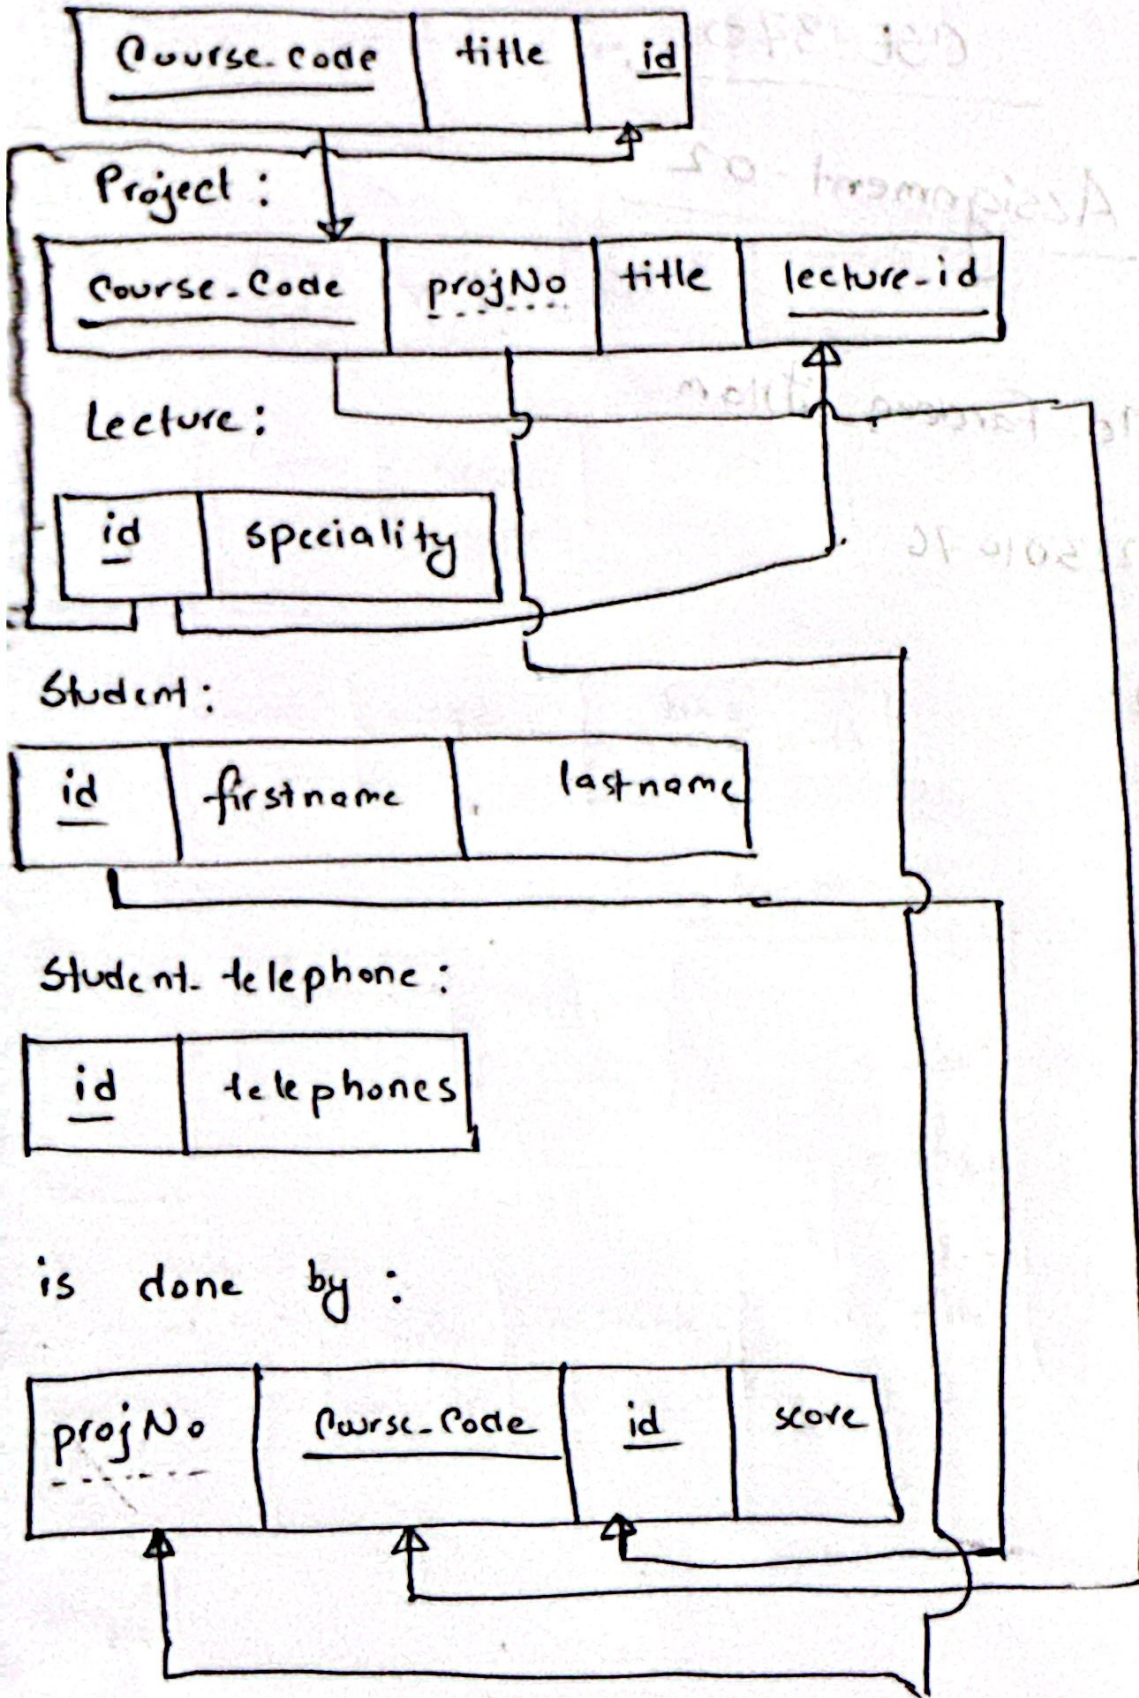 Course_code title id
Project:
Course_Code projNo title lecture_id
Lecture:
id speciality
Student:
id firstname lastname
Student_telephone:
id telephones
is done by:
projNo Course_Code id score